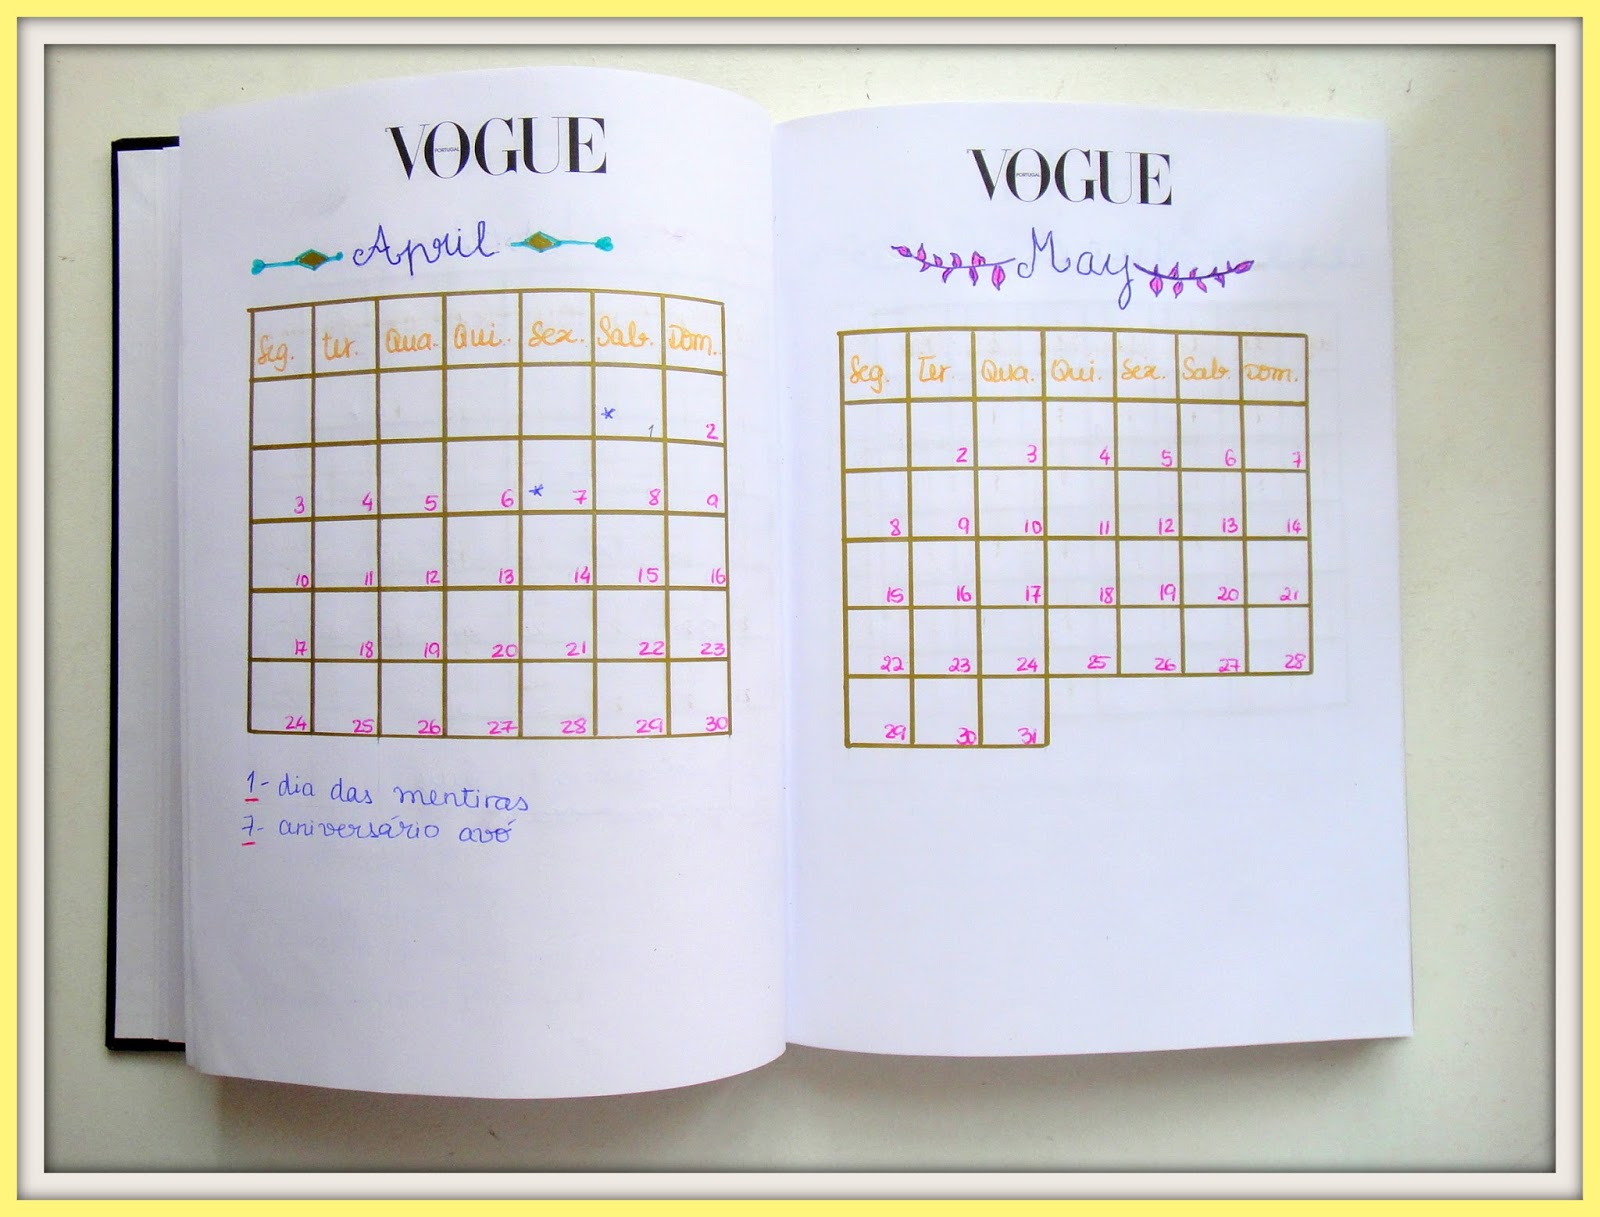 VOGUE
PORTUGAL
April
Seg. ter. Qua. Qui. Sex. Sab. Dom.
* 1 2
3 4 5 6 * 7 8 9
10 11 12 13 14 15 16
17 18 19 20 21 22 23
24 25 26 27 28 29 30
1- dia das mentiras
7- aniversário avó
VOGUE
PORTUGAL
May
Seg. Ter. Qua. Qui. Sex. Sab. Dom.
2 3 4 5 6 7
8 9 10 11 12 13 14
15 16 17 18 19 20 21
22 23 24 25 26 27 28
29 30 31